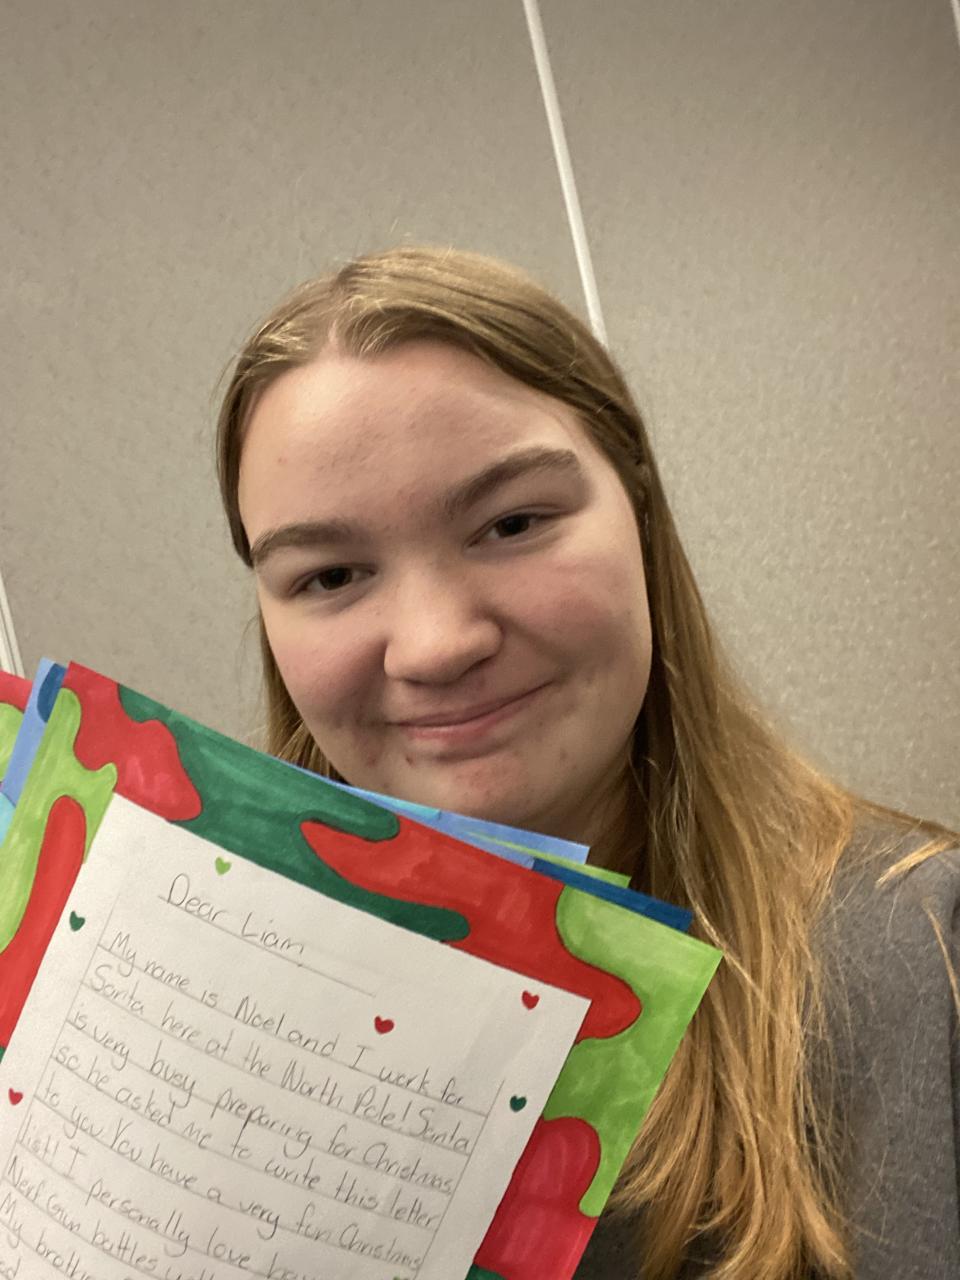 Dear Liam,
My name is Noel and I work for
Santa here at the North Pole! Santa
is very busy preparing for Christmas,
so he asked me to write this letter
to you. You have a very fun Christmas
list! I personally love
Nerf Gun battles
My